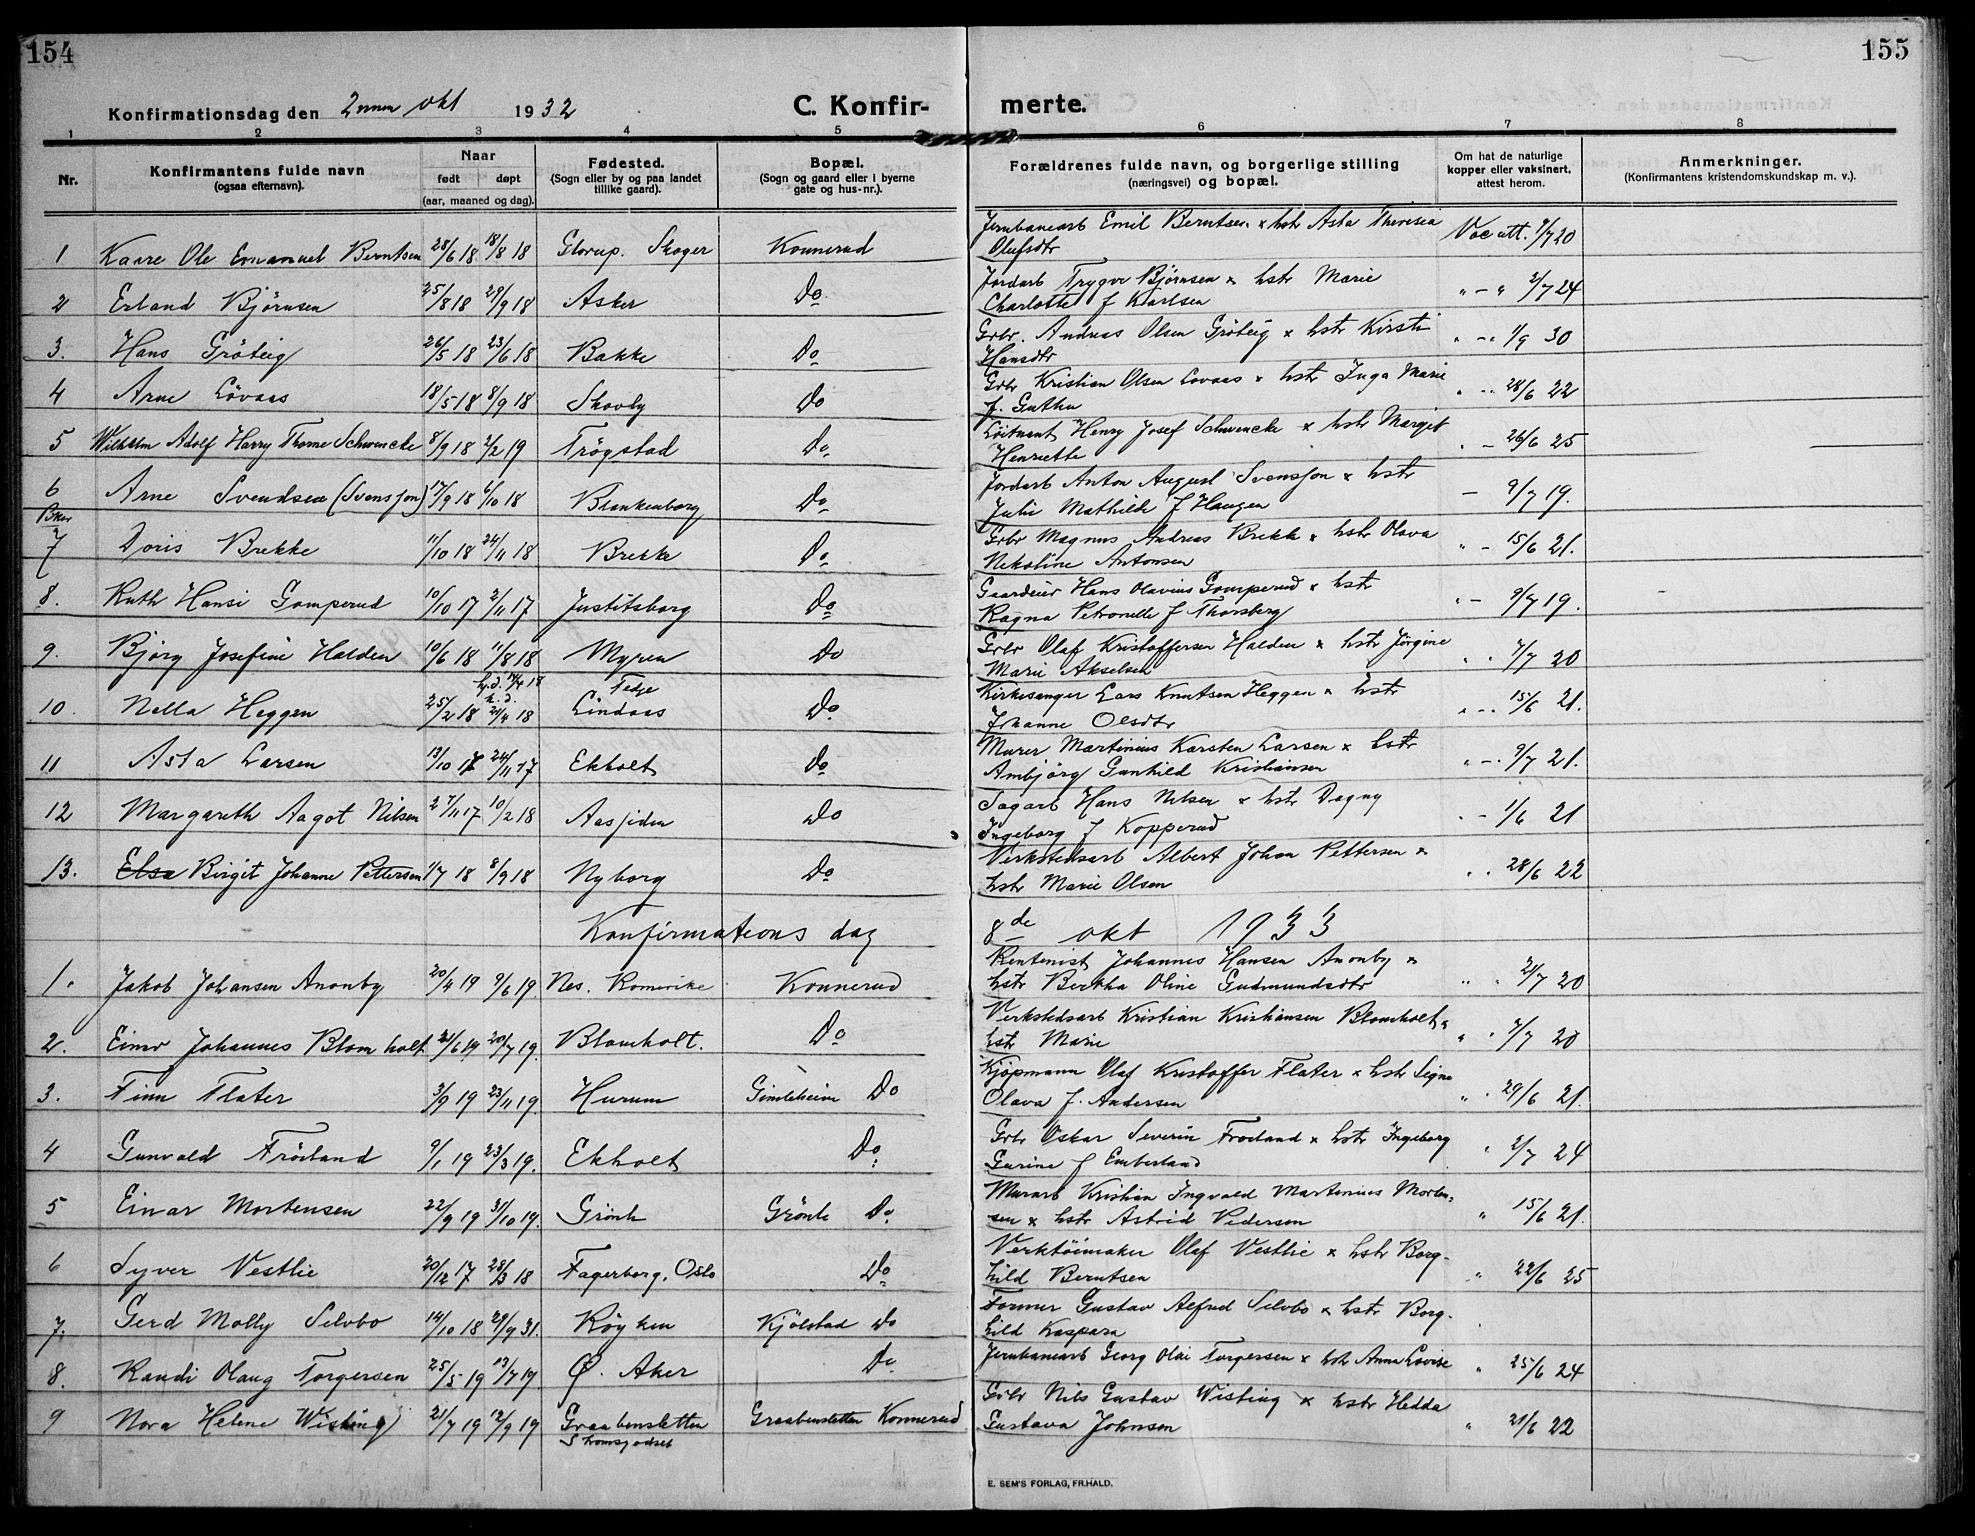 154
155
Konfirmationsdag den 2nnen okt 1932
C. Konfir-
merte.
1 2 3 4 5 6 7 8
Nr.
Konfirmantens fulde navn
(ogsaa efternavn).
Naar
født døpt
(aar, maaned og dag).
Fødested.
(Sogn eller by og paa landet
tillike gaard).
Bopæl.
(Sogn og gaard eller i byerne
gate og hus-nr.).
Forældrenes fulde navn, og borgerlige stilling
(næringsvei) og bopæl.
Om hat de naturlige
kopper eller vaksinert,
attest herom.
Anmerkninger.
(Konfirmantens kristendomskundskap m. v.).
1 Kaare Ole Emanuel Berntsen 28/6 18 18/8 18 Glorup. Skoger Konnerud
Jernbanearb Emil Berntsen x hstr Asta Theresia
Olufsdtr
Vac att. 7/7 20
2 Erland Bjørnsen 25/8 18 29/9 18 Asker Do
Jordarb Trygve Bjørnsen x hstr Marie
Charlotte f Karlsen
" - " 2/7 24
3. Hans Gröteig 26/5 18 23/6 18 Bakke Do
Grbr. Andreas Olsen Gröteig x hstr Kirsti
Hansdtr
" - " 1/9 30
4 Arne Lövaas 18/5 18 8/9 18 Skovly Do
Grbr Kristian Olsen Lovaas x hstr Inga Marie
f. Guthu
" " 28/6 22
5 Wilhelm Adolf Harry Thorne Schwencke 8/9 18 2/2 19 Trögstad Do
Löitnant Henry Josef Schwencke x hstr Margit
Henriette
" - 26/6 25
6 Arne Svendsen (Svensson) 17/9 18 6/10 18 Blankenborg Do
Jordarb Anton August Svensson x hstr
Julie Mathilde f Haugen
- 9/7 19.
7 Doris Brekke 11/10 18 24/11 18 Brekke Do
Grbr Magnus Andreas Brekke x hstr Olava
Nekoline Antonsen
" - 15/6 21.
8. Ruth Hansi Gomperud 10/10 17 2/11 17 Justitsborg Do
Gaardeier Hans Olavius Gomperud x hstr
Ragna Petronelle f Thorsberg
" - 9/7 19.
9. Bjørg Josefine Halden 10/6 18 11/8 18 Myren Do
Grbr Olaf Kristoffersen Halden x hstr Jørgine
Marie Akselsen
" " 7/7 20
10. Nella Heggen 25/2 18 hj.d. 17/4 18 k.d. 21/4 18 Fedje Lindaas Do
Kirkesanger Lars Knutsen Heggen x hstr
Johanne Olsdtr
" - " 15/6 21.
11 Asta Larsen 13/10 17 24/11 17 Ekholt Do
Murer Martinius Karsten Larsen x hstr
Ambjörg Gunhild Kristiansen
" - 9/7 21.
12 Margareth Aagot Nilsen 27/11 17 10/2 18 Aassiden Do
Sagarb Hans Nilsen x hstr Dagny
Ingeborg f Kopperud
" - 1/6 21
13. Elsa Birgit Johanne Pettersen 1/7 18 8/9 18 Nyborg Do
Verkstedsarb Albert Johan Pettersen x
hstr Marie Olsen
" " 28/6 22
Konfirmations dag 8de okt 1933
1. Jakob Johansen Anonby 20/4 19 9/6 19. Nes. Romerike Konnerud
Rentenist Johannes Hansen Anonby x
hstr Bertha Oline Gudmundsdtr
" " 2/7 20
2. Einar Johannes Blomholt 21/6 19 20/7 19. Blomholt. Do
Verkstedsarb Kristian Kristiansen Blomholt x
hstr Marie
" " 7/7 20
3. Finn Flater 3/9 19 23/11 19. Hurum Gimleheim Do
Kjöpmann Olaf Kristoffer Flater x hstr Signe
Olava f. Andersen
" " 29/6 21.
4 Gunvald Fröiland 9/1 19 23/3 19. Ekholt Do
Grbr Oskar Severin Froiland x hstr Ingeborg
Gurine f Emberland
" 2/7 24
5 Einar Mortensen 22/9 19 31/10 19. Grönli Grönli Do
Murarb Kristian Ingvald Martenius Morten-
sen x hstr Astrid Pedersen
" 15/6 21.
6 Syver Vestlie 20/12 17 28/3 18 Fagerborg, Oslo Do
Verktöimaker Olaf Vestlie x hstr Borg-
hild Berntsen
" 22/6 25
7. Gerd Molly Selvbo 14/10 18 29/9 31. Röyken Kjölstad Do
Former Gustav Alfred Selvbo x hstr Borg-
hild Kaspara
8. Randi Olaug Torgersen 25/5 19 13/7 19 Ø. Aker Do
Jernbanearb Georg Olai Torgersen x hstr Anna Lovise
" 25/6 24
9 Nora Helene Wisting 21/7 19 12/9 19 Graabensletten Graabensletten Konnerud
Stromsgodset
Grbr Nils Gustav Wisting x hstr Hedda
Gustava Johnsen
" 21/6 22
E. SEM'S FORLAG, FR.HALD.